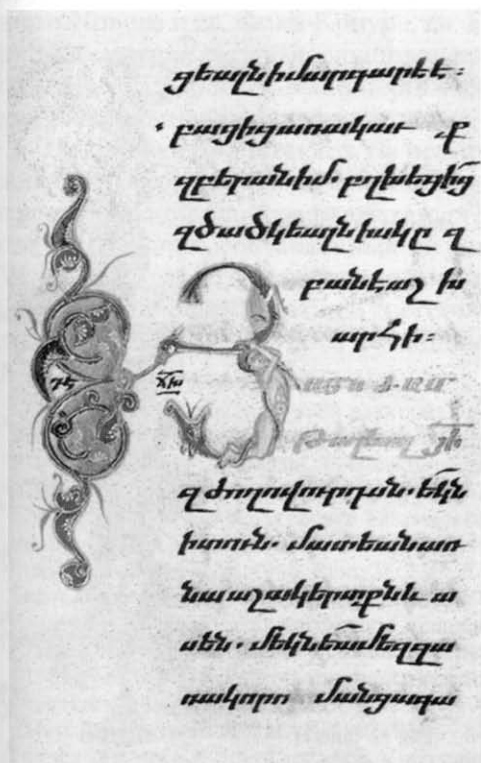 ցեալն ի մարգարէէ։
բացից առակաւ
զբերան իմ. բղխեցից
զծածկեալն ի սկը զ
բանէ աշ խ
արհի։
Յայն ժամ
թողեալ յս
զժողովուրդսն. եկն
ի տուն. մատեան առ
նա աշակերտքն և ա
սեն. մեկնեա մեզ զա
ռակ որո մանց ագա
ՃԽ